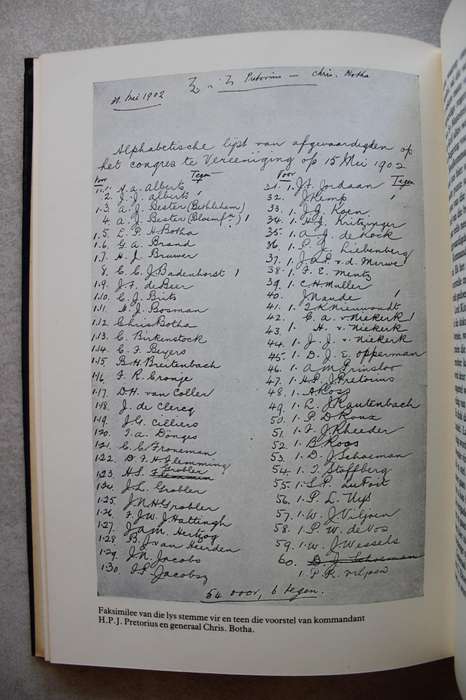 31 Mei 1902
Pretorius — Chris. Botha
Alphabetische lijst van afgevaardigden op
het congres te Vereeniging op 15 Mei 1902.
Voor Tegen
1. 1. H. A. Alberts
2. J. J. Alberts 1
1. 3. A. J. Bester (Bethlehem)
4. A. J. Bester (Bloemf n) 1
1. 5. L. P. H. Botha
1. 6. G. A. Brand
1. 7. H. J. Bruwer
8. C. C. J. Badenhorst 1
1. 9. J. F. de Beer
1. 10. C. J. Brits
1. 11. H. J. Bosman
1. 12 Chris Botha
1. 13. C. Birkenstock
1. 14 C. F. Beyers
1. 15 B. H. Breitenbach
1. 16 F. R. Cronje
1. 17. D. H. van Coller
1. 18. J. de Clercq
1. 19. J. G. Cilliers
1. 20. T. A. Donges
1. 21. C. C. Froneman
1. 22. D. F. H. Flemming
1. 23. H. S. Grobler
1. 24. J. L. Grobler
1. 25. J. N. H. Grobler
1. 26. F. J. W. J. Hattingh
1. 27. J. A. M. Hertzog
1. 28 B. J. van Heerden
1. 29. J. N. Jacobs
1. 30. J. P. Jacobsz
Voor Tegen
31. 1. J. Jordaan
32. J. Kemp 1
33. 1. J. Koen
34. 1. Kritzinger
35. 1. A. J. de Kock
36. 1. P. J. Liebenberg
37. 1. J. A. P. v. d. Merwe
38. 1. F. E. Mentz
39. 1. C. H. Muller
40. J. Naude 1
41. 1. J. K. Nieuwoudt
42. C. A. v. Niekerk 1
43. 1. H. v. Niekerk
44. 1. J. J. v. Niekerk
45. 1. D. J. E. Opperman
46. 1. A. M. Prinsloo
47. 1. H. P. J. Pretorius
48. 1. A. Ross
49. 1. L. J. Rautenbach
50. 1. P. D. Roux
51. 1. F. J. Rheeder
52. 1. B. Roos
53. 1. D. J. Schoeman
54. 1. T. Stoffberg
55. 1. S. P. du Toit
56. 1. P. L. Uys
57. 1. W. J. Viljoen
58. 1. P. W. de Vos
59. 1. W. J. Wessels
60. D. J. Schoeman
1. P. R. Viljoen
54 voor, 6 tegen.
Faksimilee van die lys stemme vir en teen die voorstel van kommandant
H.P.J. Pretorius en generaal Chris. Botha.